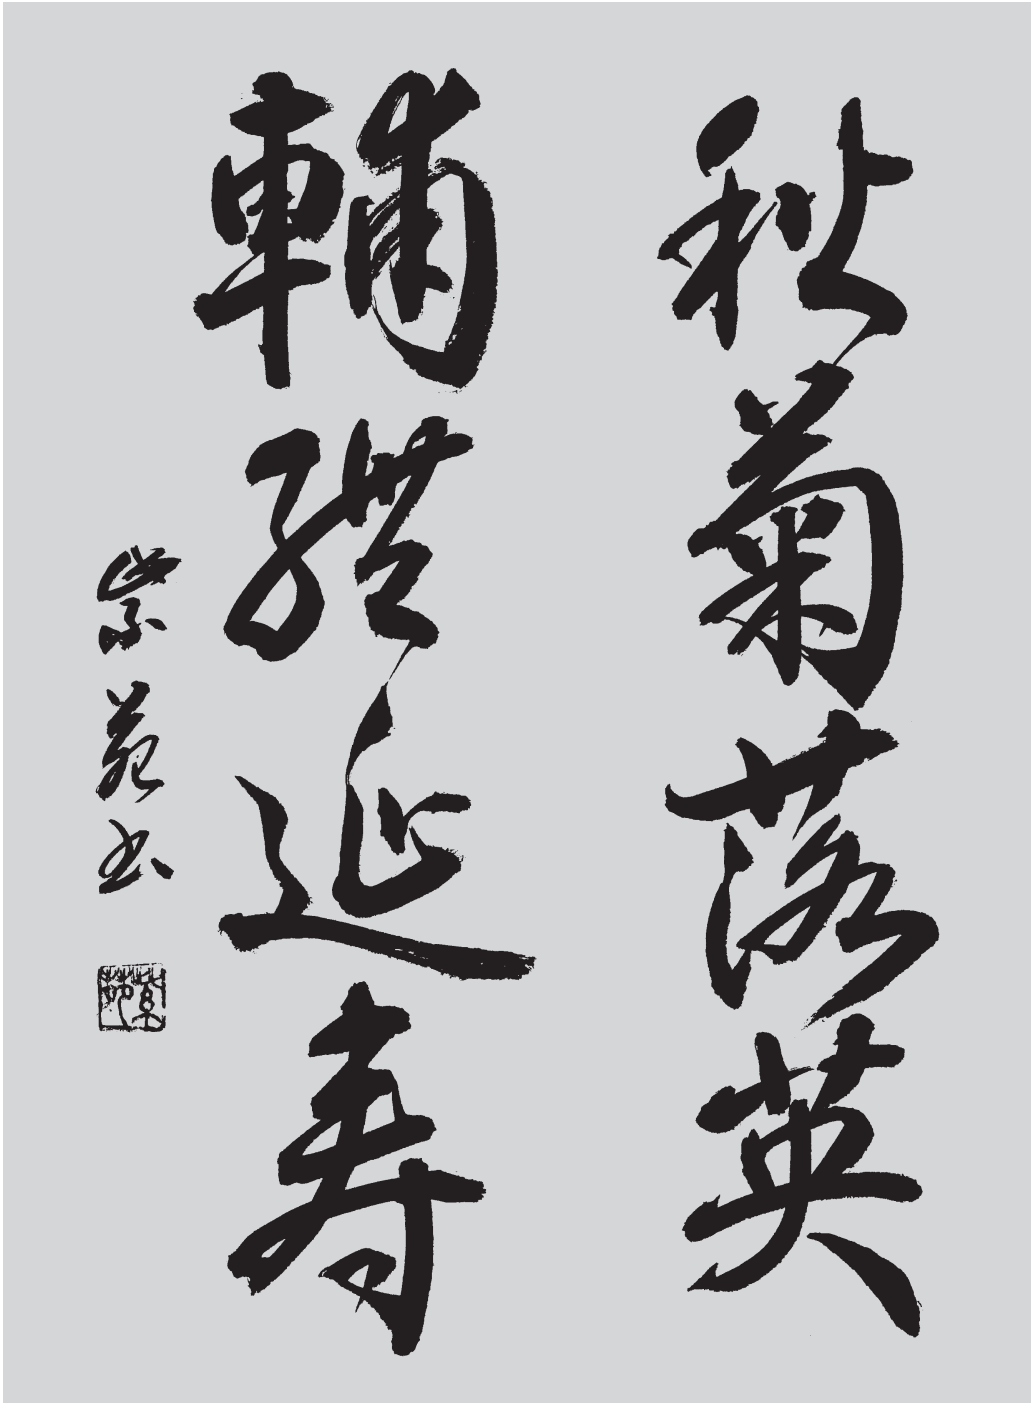 秋菊落英
輔體延寿
紫苑書
紫苑